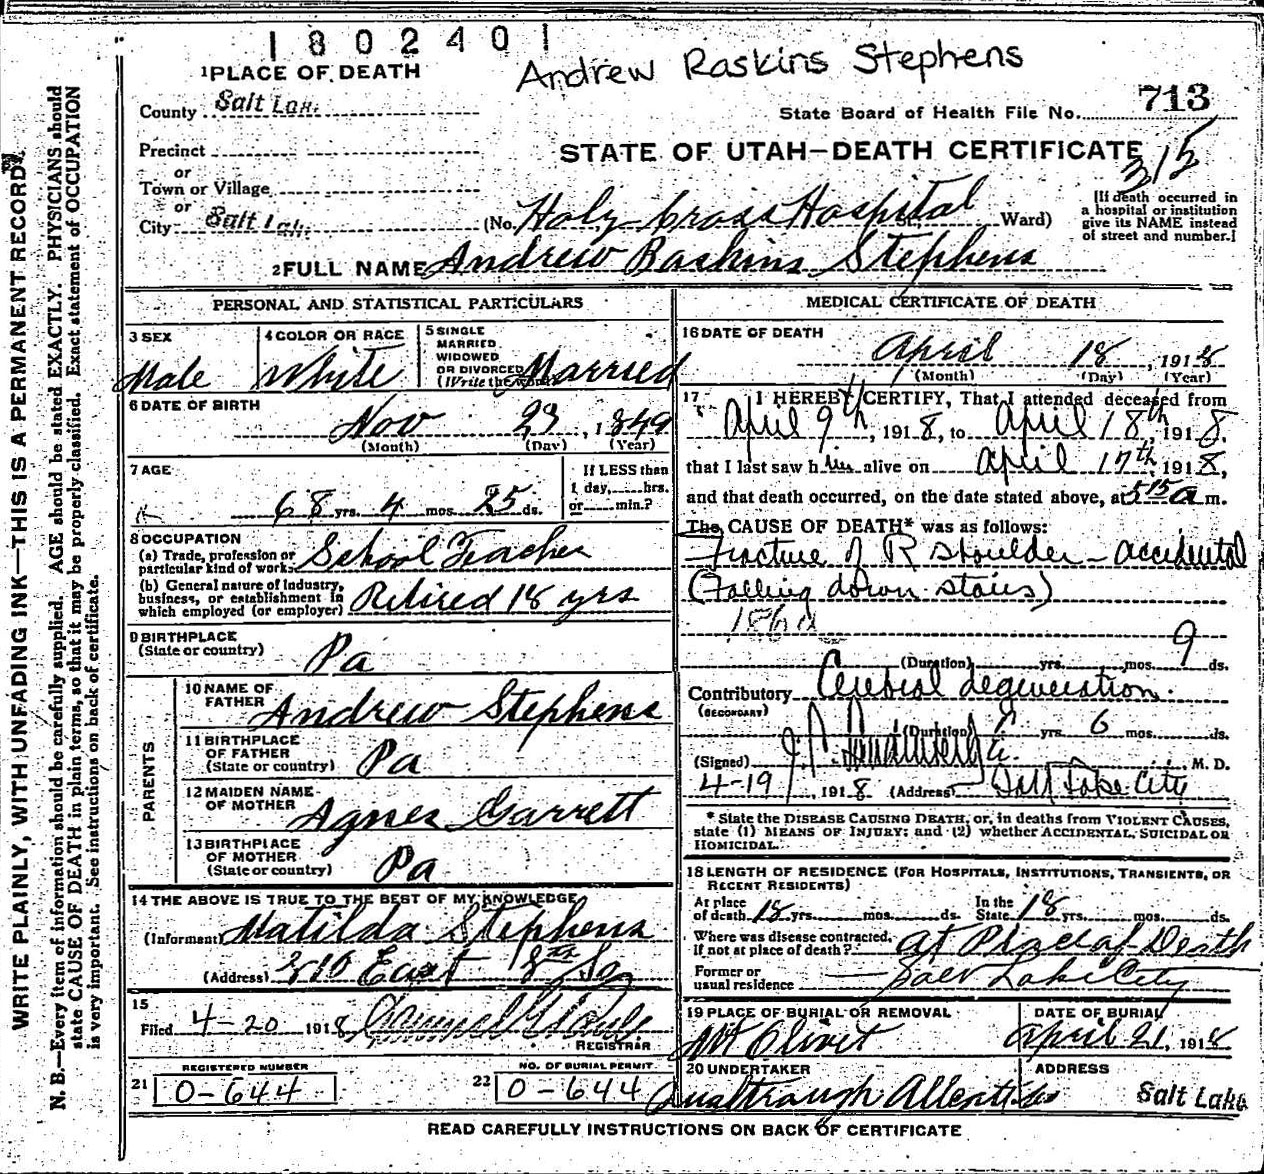 1802401
Andrew Raskins Stephens
1 PLACE OF DEATH
County Salt Lake
State Board of Health File No. 713
Precinct
STATE OF UTAH—DEATH CERTIFICATE
315
or
Town or Village
or
City Salt Lake
(No. Holy Cross Hospital St., Ward)
[If death occurred in
a hospital or institution
give its NAME instead
of street and number.]
2 FULL NAME Andrew Baskins Stephens
PERSONAL AND STATISTICAL PARTICULARS
3 SEX
Male
4 COLOR OR RACE
White
5 SINGLE
MARRIED
WIDOWED
OR DIVORCED
(Write the word) Married
6 DATE OF BIRTH
Nov 23, 1849
(Month) (Day) (Year)
7 AGE
68 yrs. 4 mos. 25 ds.
If LESS than
1 day, hrs.
or min.?
8 OCCUPATION
(a) Trade, profession or
particular kind of work School Teacher
(b) General nature of Industry,
business, or establishment in
which employed (or employer) Retired 18 yrs
9 BIRTHPLACE
(State or country) Pa
PARENTS
10 NAME OF
FATHER Andrew Stephens
11 BIRTHPLACE
OF FATHER
(State or country) Pa
12 MAIDEN NAME
OF MOTHER Agnes Garrett
13 BIRTHPLACE
OF MOTHER
(State or country) Pa
14 THE ABOVE IS TRUE TO THE BEST OF MY KNOWLEDGE
(Informant) Matilda Stephens
(Address) 310 East 8th So
15
Filed 4-20 1918
REGISTRAR
REGISTERED NUMBER
21 0-644
NO. OF BURIAL PERMIT
22 0-644
MEDICAL CERTIFICATE OF DEATH
16 DATE OF DEATH
April 18, 1918
(Month) (Day) (Year)
17 I HEREBY CERTIFY, That I attended deceased from
April 9th, 1918, to April 18th, 1918.
that I last saw him alive on April 17th, 1918,
and that death occurred, on the date stated above, at 5 15 a m.
The CAUSE OF DEATH* was as follows:
Fracture of R shoulder - accidental
(Falling down stairs)
(Duration) yrs. mos. 9 ds.
Contributory Cerebral degeneration.
(SECONDARY)
(Duration) yrs. 6 mos. ds.
(Signed) M. D.
4-19, 1918 (Address) Salt Lake City
* State the DISEASE CAUSING DEATH, or, in deaths from VIOLENT CAUSES,
state (1) MEANS OF INJURY; and (2) whether ACCIDENTAL, SUICIDAL OR
HOMICIDAL.
18 LENGTH OF RESIDENCE (FOR HOSPITALS, INSTITUTIONS, TRANSIENTS, OR
RECENT RESIDENTS)
At place
of death 18 yrs. mos. ds.
In the
State 18 yrs. mos. ds.
Where was disease contracted,
if not at place of death? At Place of Death
Former or
usual residence Salt Lake City
19 PLACE OF BURIAL OR REMOVAL
Mt Olivet
DATE OF BURIAL
April 21, 1918
20 UNDERTAKER
ADDRESS
Salt Lake
READ CAREFULLY INSTRUCTIONS ON BACK OF CERTIFICATE
WRITE PLAINLY, WITH UNFADING INK—THIS IS A PERMANENT RECORD.
N. B.—Every item of information should be carefully supplied. AGE should be stated EXACTLY. PHYSICIANS should
state CAUSE OF DEATH in plain terms, so that it may be properly classified. Exact statement of OCCUPATION
is very important. See instructions on back of certificate.